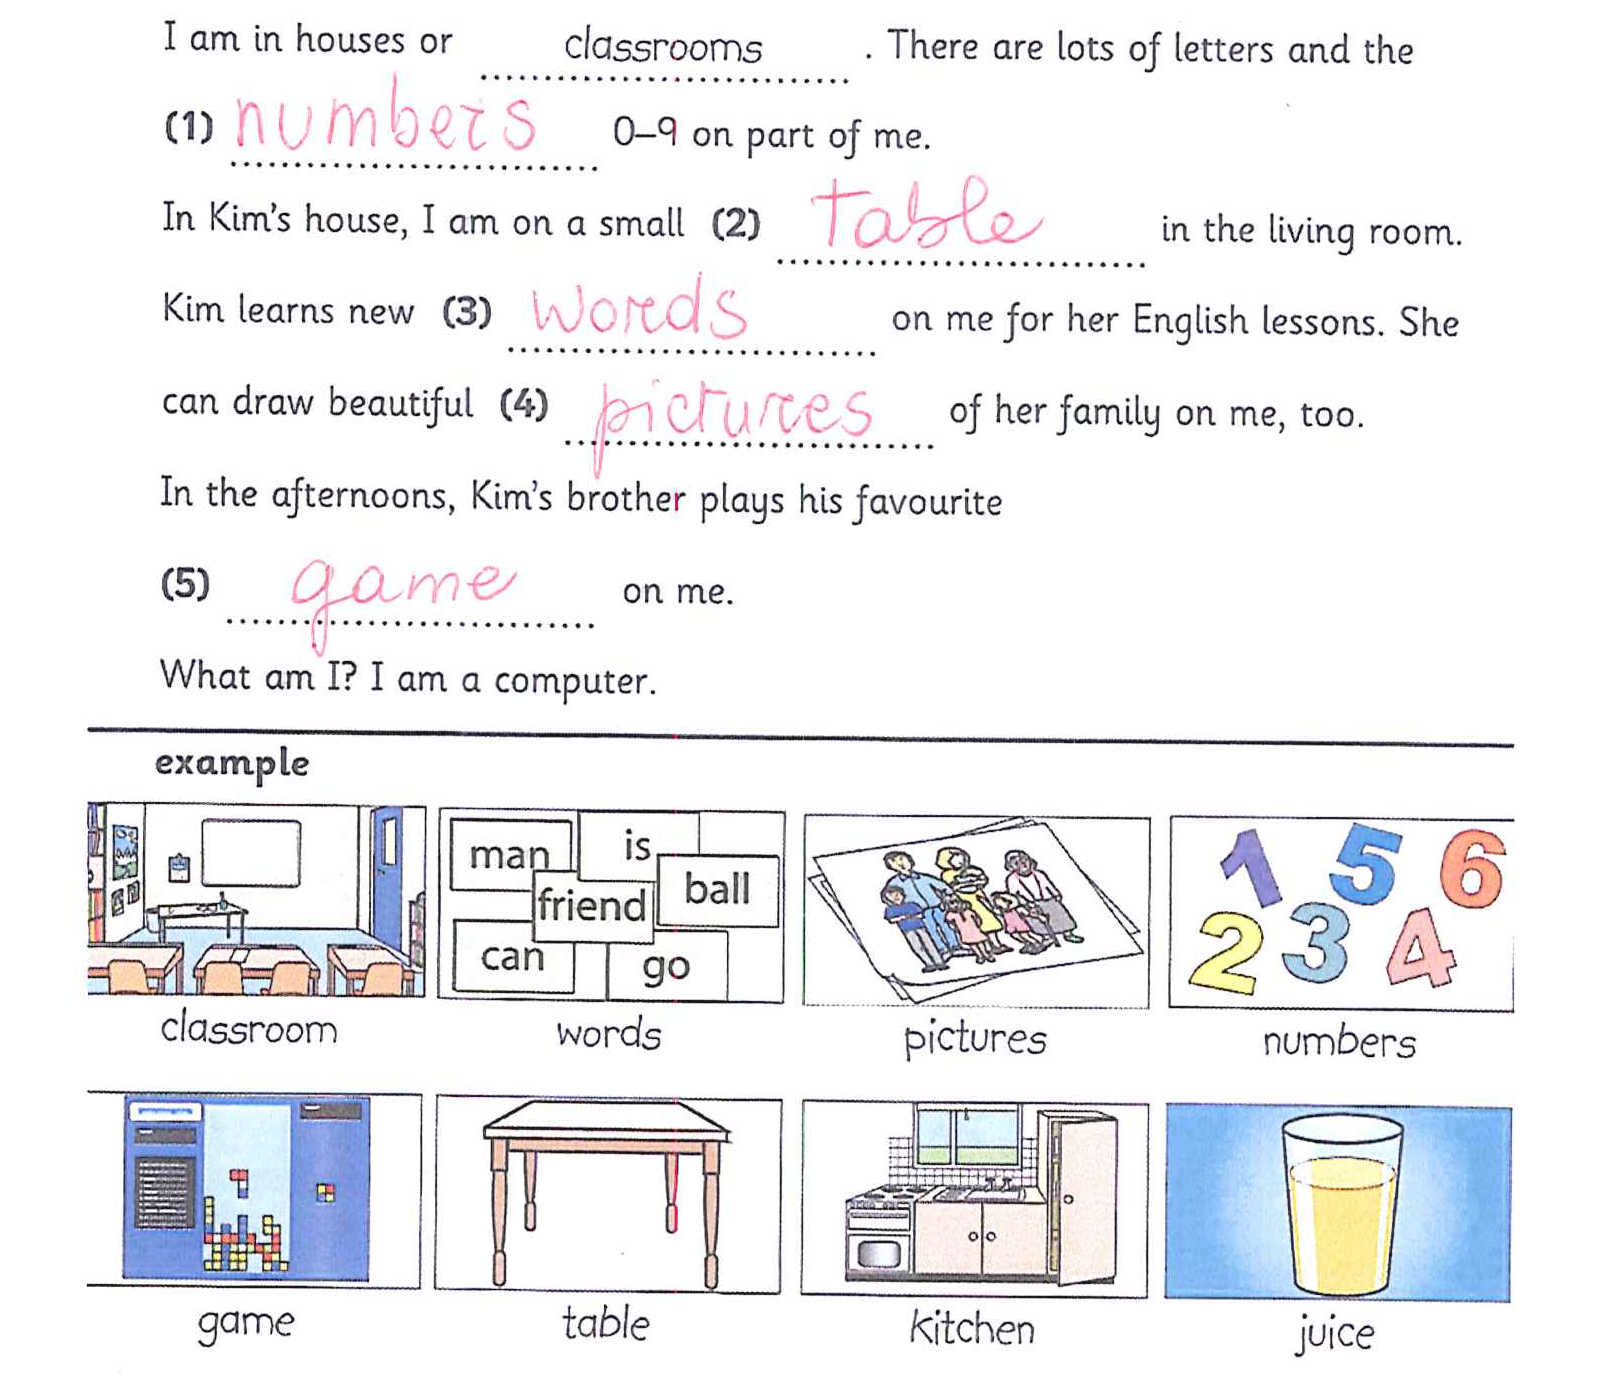 I am in houses or classrooms . There are lots of letters and the
(1) numbers 0–9 on part of me.
In Kim's house, I am on a small (2) table in the living room.
Kim learns new (3) words on me for her English lessons. She
can draw beautiful (4) pictures of her family on me, too.
In the afternoons, Kim's brother plays his favourite
(5) game on me.
What am I? I am a computer.
example
man is
friend ball
can go
classroom words pictures numbers
1 5 6
2 3 4
game table kitchen juice